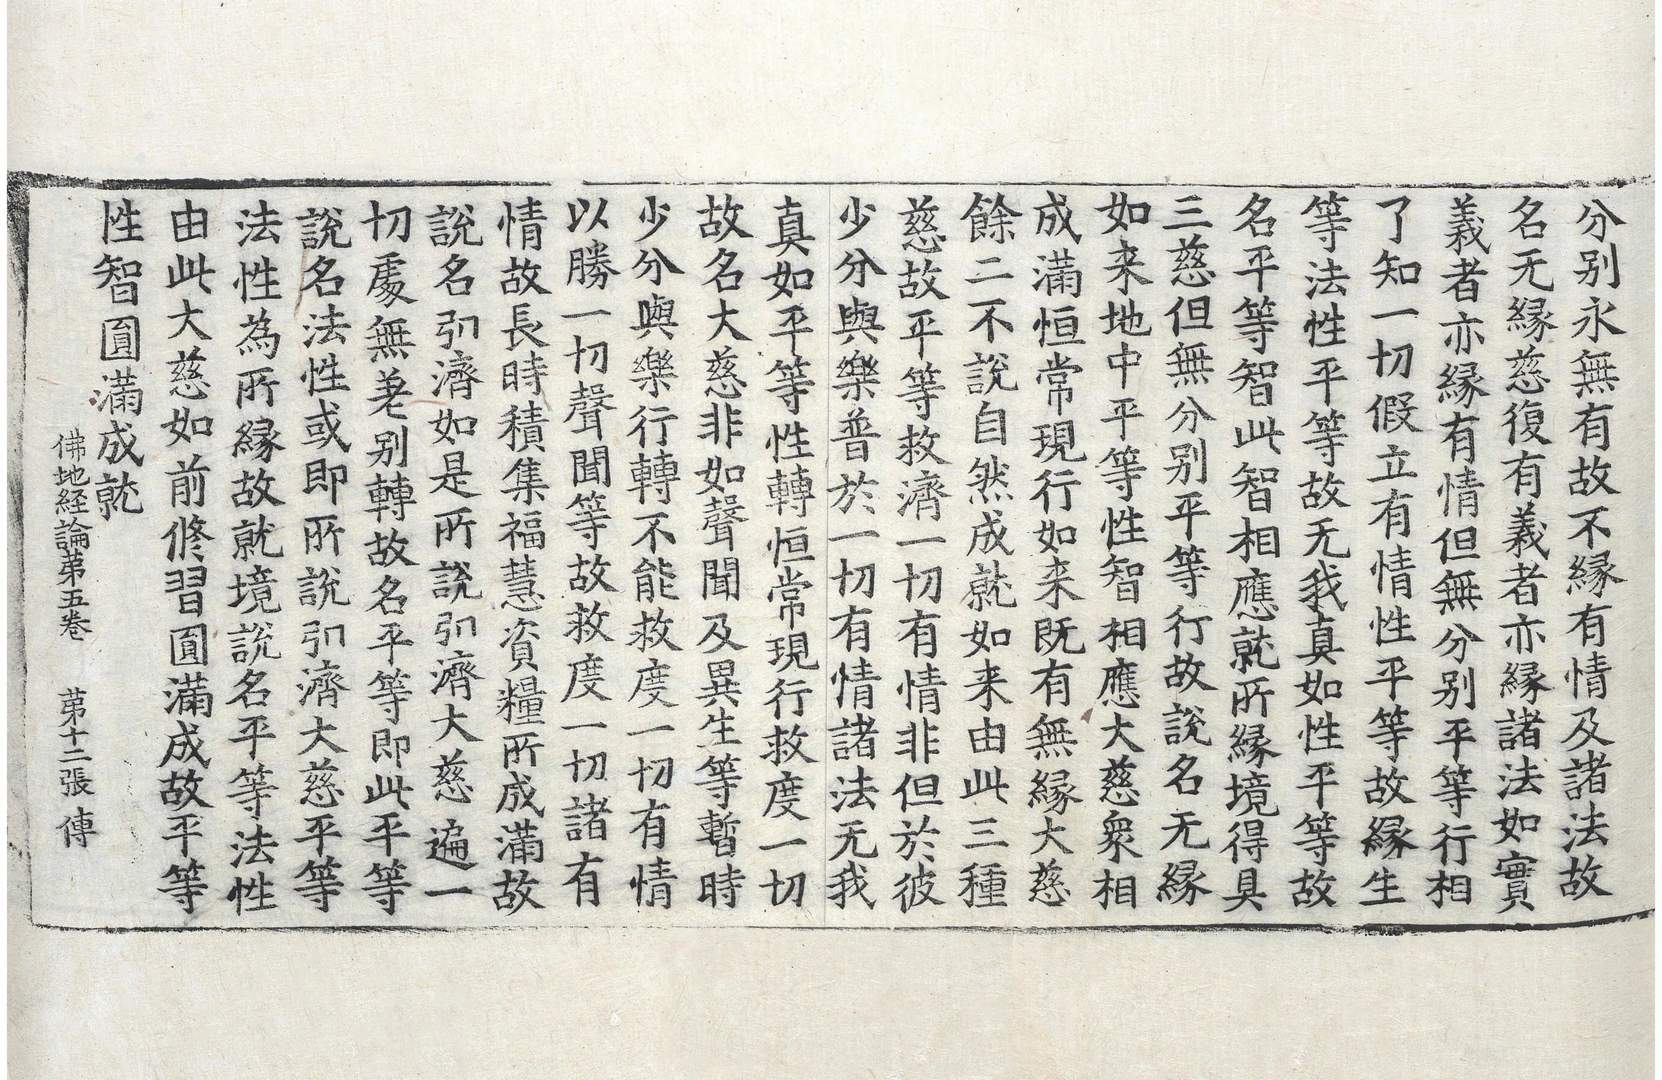 分別永無有故不緣有情及諸法故
名无緣慈復有義者亦緣諸法如實
義者亦緣有情但無分別平等行相
了知一切假立有情性平等故緣生
等法性平等故无我真如性平等故
名平等智此智相應就所緣境得具
三慈但無分別平等行故說名无緣
如来地中平等性智相應大慈衆相
成滿恒常現行如来既有無緣大慈
餘二不說自然成就如来由此三種
慈故平等救濟一切有情非但於彼
少分與樂普於一切有情諸法无我
真如平等性轉恒常現行救度一切
故名大慈非如聲聞及異生等暫時
少分與樂行轉不能救度一切有情
以勝一切聲聞等故救度一切諸有
情故長時積集福慧資糧所成滿故
說名引濟如是所說引濟大慈遍一
切處無差別轉故名平等即此平等
說名法性或即所說引濟大慈平等
法性為所緣故就境說名平等法性
由此大慈如前修習圓滿成故平等
性智圓滿成就
佛地経論第五卷　第十二張　傳